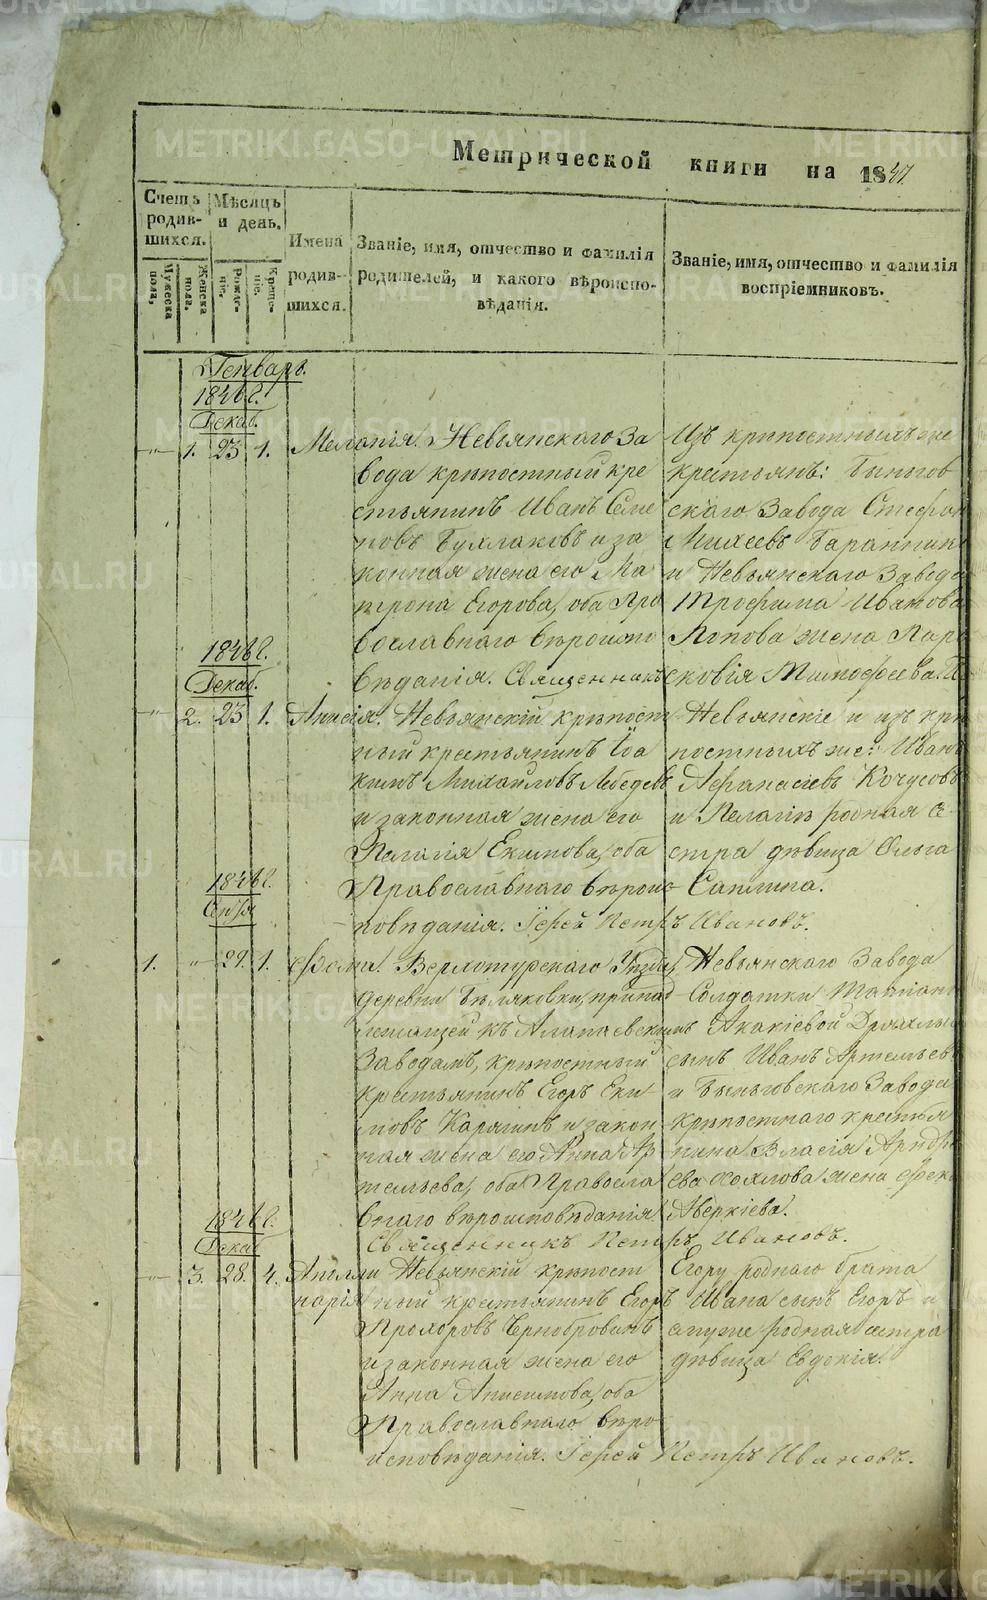 METRIKI.GASO-URAL.RU
Метрической книги на 1847.
Счетъ родив-шихся.
Мужеска пола.
Женска пола.
Мѣсяцъ и день.
Рожде-ніе.
Креще-ніе.
Имена родив-шихся.
Званіе, имя, отчество и фамилія
родителей, и какого вѣроиспо-
вѣданія.
Званіе, имя, отчество и фамилія
воспріемниковъ.
Генварь.
1846 г.
Декаб.
-"- 1. 23 1. Меланія. Невьянскаго За
вода крѣпостный кре
стьянинъ Иванъ Семе
новъ Бухлаковъ и за
конная жена его Ма
трона Егорова, оба Пра
вославнаго вѣроиспо
вѣданія. Священникъ
Изъ крѣпостныхъ же
крестьянъ: Быньгов
скаго Завода Стефан
Михеевъ Баранник
и Невьянскаго Завода
Трофима Иванова
Попова жена Пара
сковія Тимофеева. П
1846 г.
Декаб.
-"- 2. 23 1. Анисія. Невьянскій крѣпост
ный крестьянинъ Іоа
кимъ Михайловъ Лебедевъ
и законная жена его
Пелагія Екимова, оба
Православнаго вѣроис-
повѣданія. Іерей Петръ Ивановъ.
Невьянскіе и изъ крѣ
постныхъ же: Иванъ
Афанасіевъ Кочусовъ
и Пелагіи родная се
стра дѣвица Ольга
Саплина.
1846 г.
Сен/ря
1. -"- 29. 1. Фома. Верхотурскаго Уѣзда,
деревни Бѣляковки, принад
лежащей къ Алапаевскимъ
Заводамъ, крѣпостный
крестьянинъ Егоръ Еки
мовъ Карягинъ и закон
ная жена его Анна Ар
темьева, оба Правосла
внаго вѣроисповѣданія
Священникъ Петръ Ивановъ.
Невьянскаго Завода
Солдатки Татіаны
Акакіевой Дряхлых
сынъ Иванъ Артемьев
и Быньговскаго Завода
крѣпостнаго крестья
нина Власія Андре
ева жена Фек
Аверкіева.
1846 г.
Декаб
-"- 3. 28. 4. Аполли
нарія
Невьянскій крѣпост
ный крестьянинъ Егоръ
Прохоровъ Чернобровинъ
и законная жена его
Анна Анисимова, оба
Православнаго вѣро
исповѣданія. Іерей Петръ Ивановъ.
Егору роднаго брата
Ивана сынъ Егоръ и
ему же родная сестра
дѣвица Евдокія.